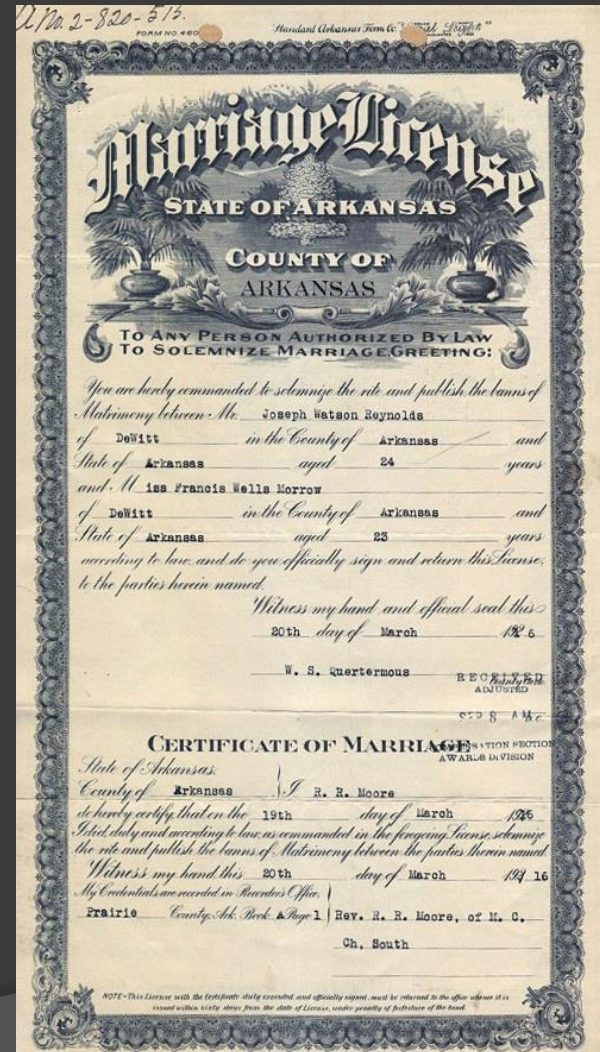 No. 2-820-515.
FORM NO. 460 Standard Arkansas Form Co.
Marriage License
STATE OF ARKANSAS
COUNTY OF
ARKANSAS
TO ANY PERSON AUTHORIZED BY LAW
TO SOLEMNIZE MARRIAGE, GREETING:
You are hereby commanded to solemnize the rite and publish the banns of
Matrimony between Mr. Joseph Watson Reynolds
of DeWitt in the County of Arkansas and
State of Arkansas aged 24 years
and M iss Francis Wells Morrow
of DeWitt in the County of Arkansas and
State of Arkansas aged 23 years
according to law, and do you officially sign and return this License,
to the parties herein named.
Witness my hand and official seal this
20th day of March
W. S. Quertermous County Clerk
RECEIVED
ADJUSTED
SEP 8 AM
CERTIFICATE OF MARRIAGE
SECTION
AWARDS DIVISION
State of Arkansas.
County of Arkansas } I R. R. Moore
do hereby certify that on the 19th day of March
I did, duly and according to law, as commanded in the foregoing License, solemnize
the rite and publish the banns of Matrimony between the parties therein named
Witness my hand this 20th day of March 16
My Credentials are recorded in Recorders Office,
Prairie County, Ark. Book A Page 1 Rev. R. R. Moore, of M. C.
Ch, South
NOTE-This License with the Certificate duly executed and officially signed, must be returned to the office whence it is
issued within sixty days from the date of License, under penalty of forfeiture of the bond.